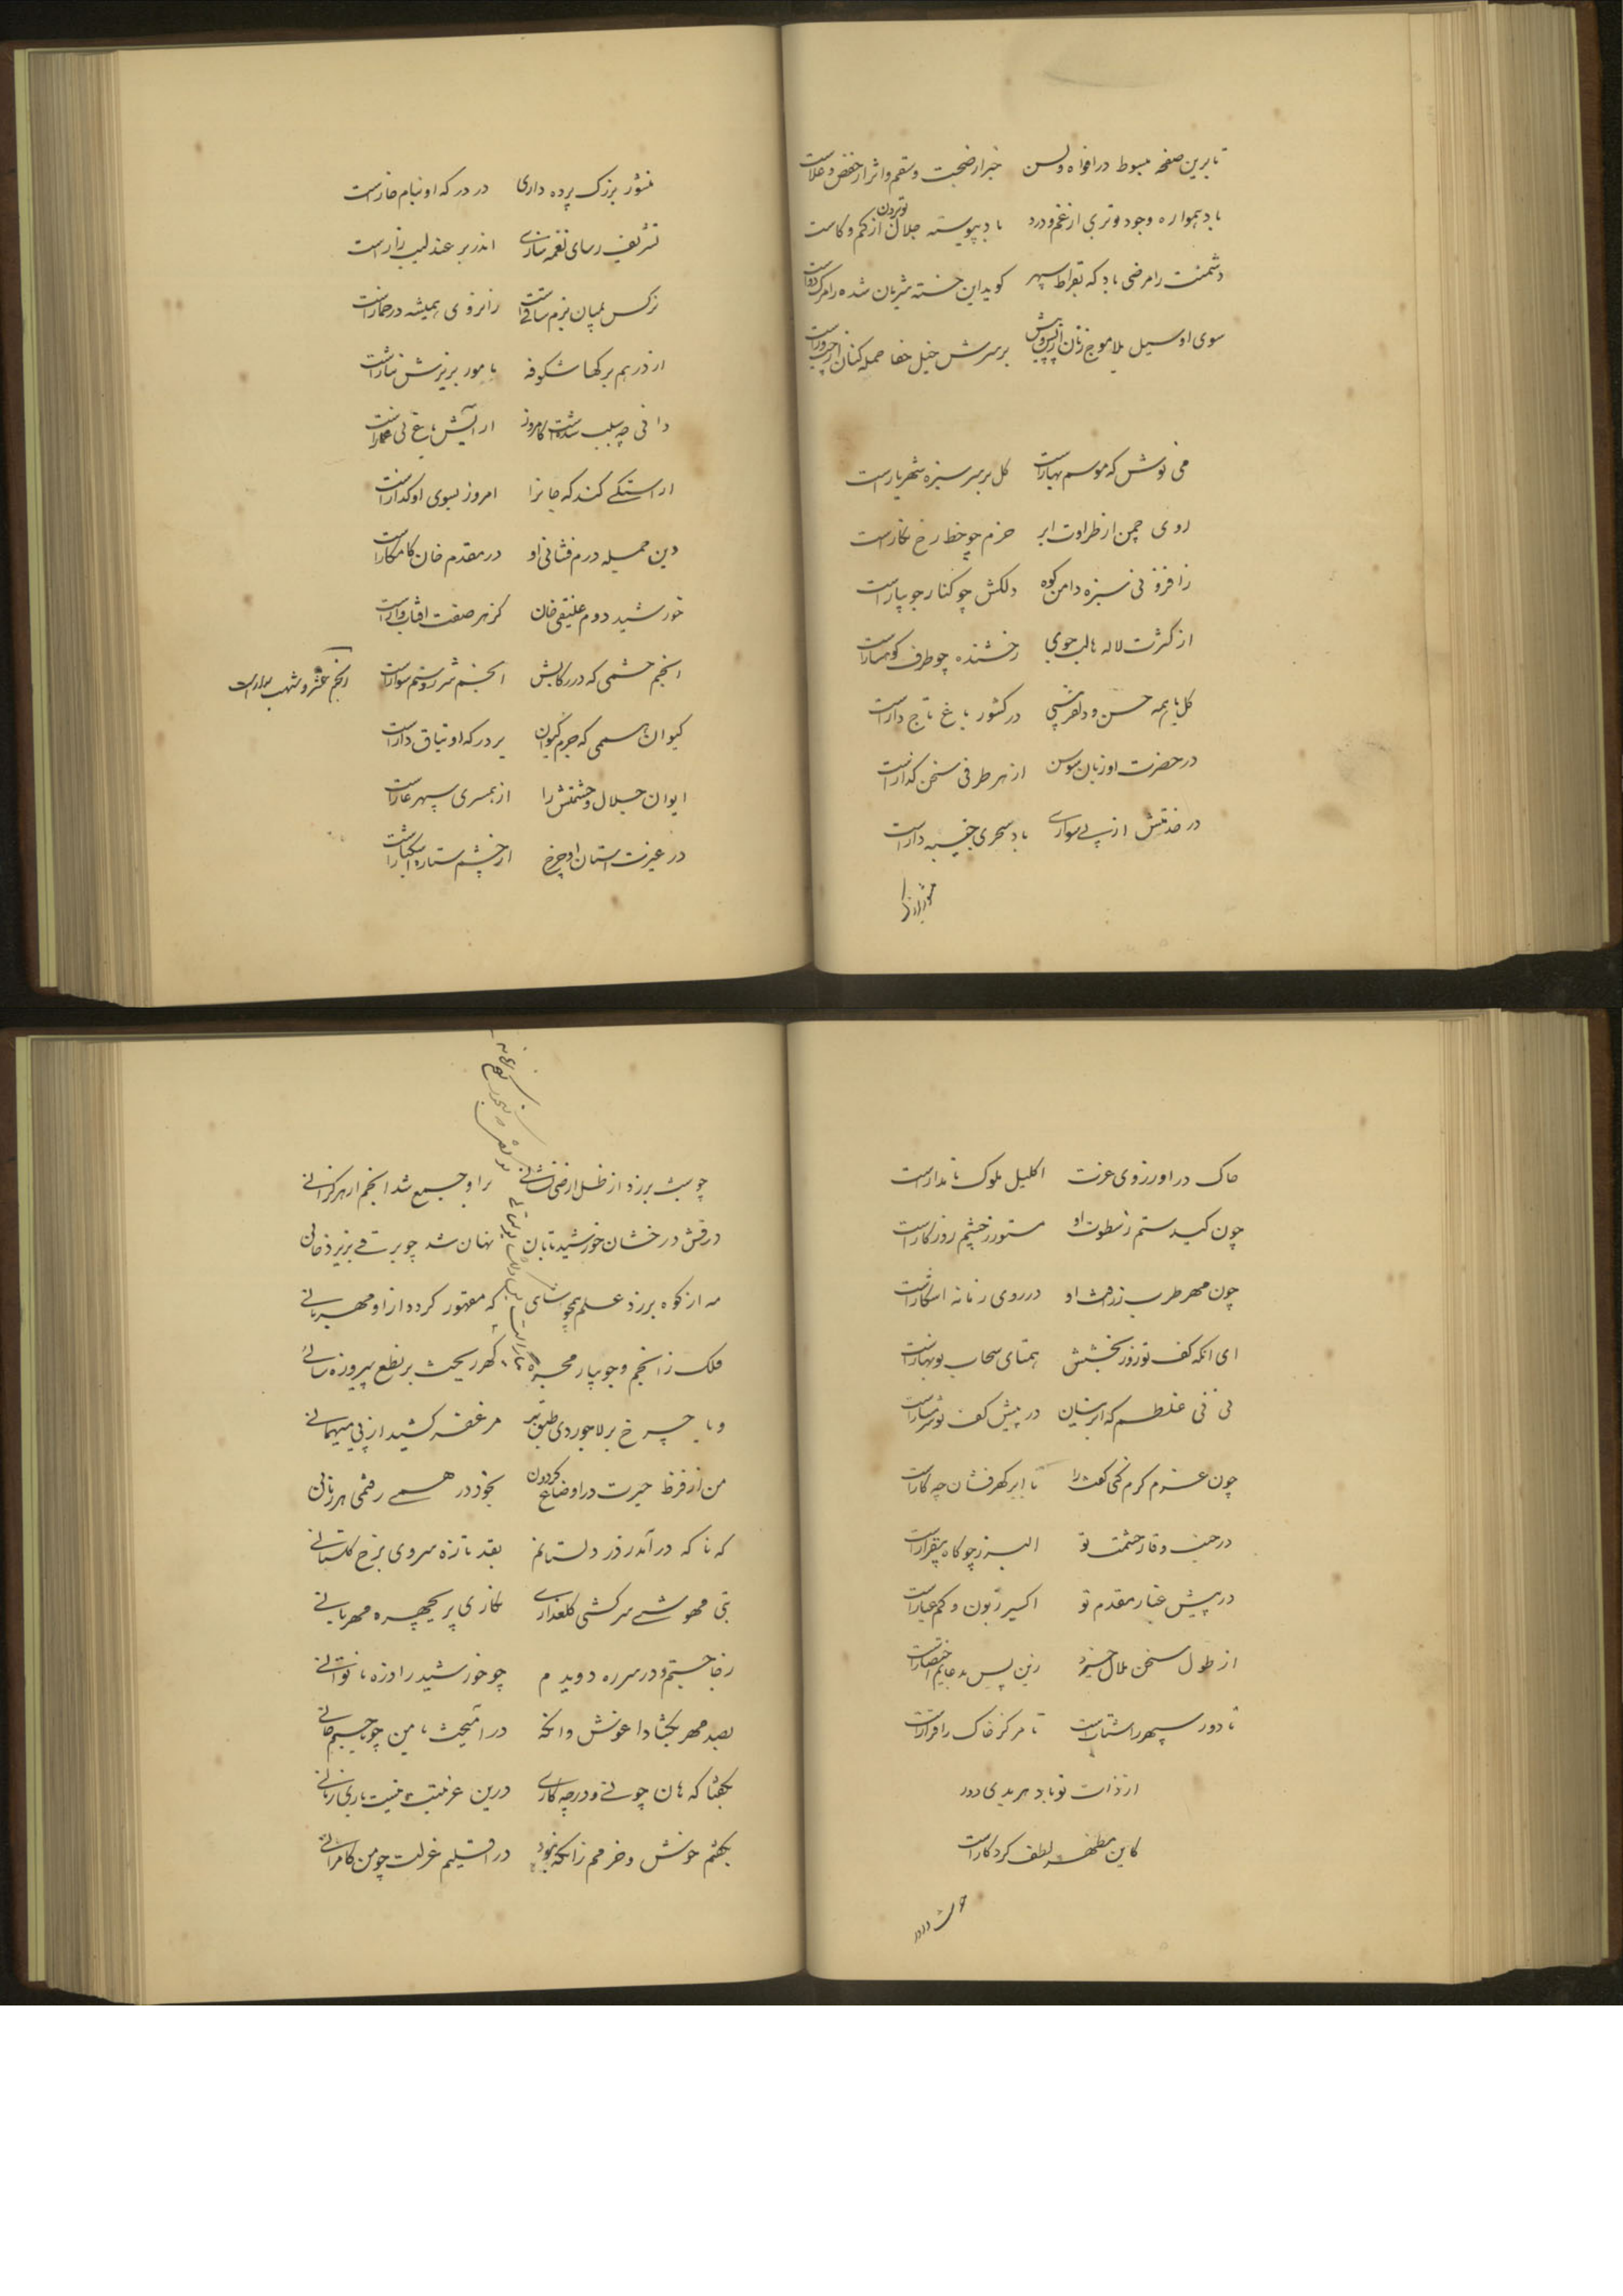 تا برین صفحه مبسوط در افواه و لسن خبر از صحبت و سقم و اثر از خفض و علاست
باد همواره وجود تو بری از غم و درد باد پیوسته جلال تو بردن از کم و کاست
دشمنت را مرضی باد که بقراط سپهر کوید این خسته شریان شده را مرک دواست
سوی او سیل بلا موج زنان از پس و پیش بر سرش خیل جفا حمله کنان از چپ و راست
می نوش که موسم بهار است کل بر سر سبزه شهریار است
روی چمن از طراوت ابر خرم چو خط رخ نکار است
ز افزونی سبزه دامن کوه دلکش چو کنار جویبار است
از کثرت لاله ها لب جوی رخشنده چو طرف کوهسار است
کل با همه حسن و دلفریبی در کشور باغ تاجدار است
در حضرت او زبان سوسن از هر طرفی سخن کذار است
در خدمتش از پی سواری باد سحری جنیبه دار است
منشور بزرک پرده داری در درکه او بنام خار است
تشریف رسای نغمه سازی اندر بر عندلیب زار است
نرکس بمیان بزم ساقیست زانروی همیشه در خمار است
از درهم برکها شکوفه با مور بریزش نثار است
دانی چه سبب شده است کامروز آرایش باغ بی شمار است
آراستکی کند که جانرا امروز بسوی او کذار است
وین حمیله درم فشانی او در مقدم خان کامکار است
خورشید دوم علینقی خان کز هر صفت افتاب وار است
انجم حشمی که در رکابش انجم شررو ستم سوار است
کیوان هممی که جرم کیوان بر درکه او یتاق دار است
ایوان جلال و حشمتش را از همسری سپهر عار است
در غیرت استان او چرخ از چشم ستاره اشکبار است
خاک در او ز روی عزت اکلیل ملوک نامدار است
چون کید ستم ز سطوت او مستور ز چشم روزکار است
چون مهر طرب ز رافت او در روی زمانه اشکار است
ای انکه کف تو روز بخشش همتای سحاب نوبهار است
نی نی غلطم که ابر نیسان در پیش کف تو شرمسار است
چون عزم کرم کنی کفت را با ابر کهر فشان چه کار است
در جنب وقار حشمت تو البرز چو کاه بیقرار است
در پیش غبار مقدم تو اکسیر زبون و کم عیار است
از طول سخن ملال خیزد زین پس بدعایم اختصار است
تا دور سپهر را شتاب است تا مرکز خاک را قرار است
از ذات تو باد هر بدی دور
کاین مظهر لطف کردکار است
چو شب برزد از ظل ارضی نشانی بر او جمع شد انجم از هر کرانی
درفش درخشان خورشید تابان نهان شد چو برقی بزیر دخانی
مه از کوه برزد علم همچو شاهی که مقهور کردد از او مهربانی
فلک ز انجم و جویبار مجره کهر ریخت بر نطع پیروزه سانی
و یا چرخ بر لاجوردی طبق بر مزعفر کشید از پی میهمانی
من از فرط حیرت در اوضاع کردون بخود در همی رفتمی هر زمانی
که ناکه در آمد ز در دلستانم بقد تازه سروی برخ کلستانی
بتی مهوشی سرکشی کلعذاری نکاری پریچهره مهربانی
ز جا جستم و در سر ره دویدم چو خورشید را ذره ناتوانی
بصد مهر بکشاد اغوش وانکه در آمیخت با من چو با جسم جانی
بکفتا که هان چونی و در چه کاری درین عزلتت نیست یار زمانی
بکفتم خوش و خرمم زانکه نبود در اقلیم عزلت چو من کامرانی